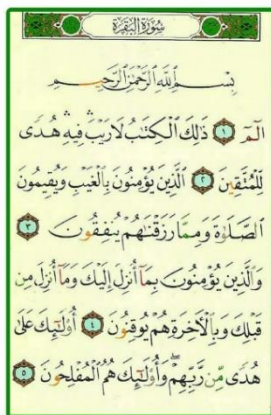 سُورَةُ الْبَقَرَةِ
بِسْمِ اللَّهِ الرَّحْمَٰنِ الرَّحِيمِ
الٓمٓ ١ ذَٰلِكَ الْكِتَٰبُ لَا رَيْبَ ۛ فِيهِ ۛ هُدًى
لِّلْمُتَّقِينَ ٢ الَّذِينَ يُؤْمِنُونَ بِالْغَيْبِ وَيُقِيمُونَ
الصَّلَوٰةَ وَمِمَّا رَزَقْنَٰهُمْ يُنفِقُونَ ٣
وَالَّذِينَ يُؤْمِنُونَ بِمَآ أُنزِلَ إِلَيْكَ وَمَآ أُنزِلَ مِن
قَبْلِكَ وَبِالْءَاخِرَةِ هُمْ يُوقِنُونَ ٤ أُو۟لَٰٓئِكَ عَلَىٰ
هُدًى مِّن رَّبِّهِمْ ۖ وَأُو۟لَٰٓئِكَ هُمُ الْمُفْلِحُونَ ٥